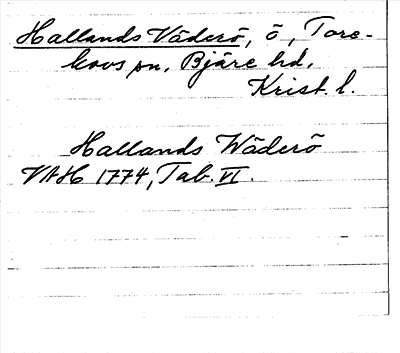 Hallands Väderö, ö, Tore-
kovs sn, Bjäre hd,
Krist. l.
Hallands Wäderö
VAH 1774, Tab. VI.